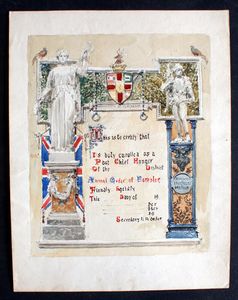 This is to certify that
Is duly enrolled as a
Past Chief Ranger
Of the District
Order of Foresters
Friendly Society
This Day of 19
Secretary